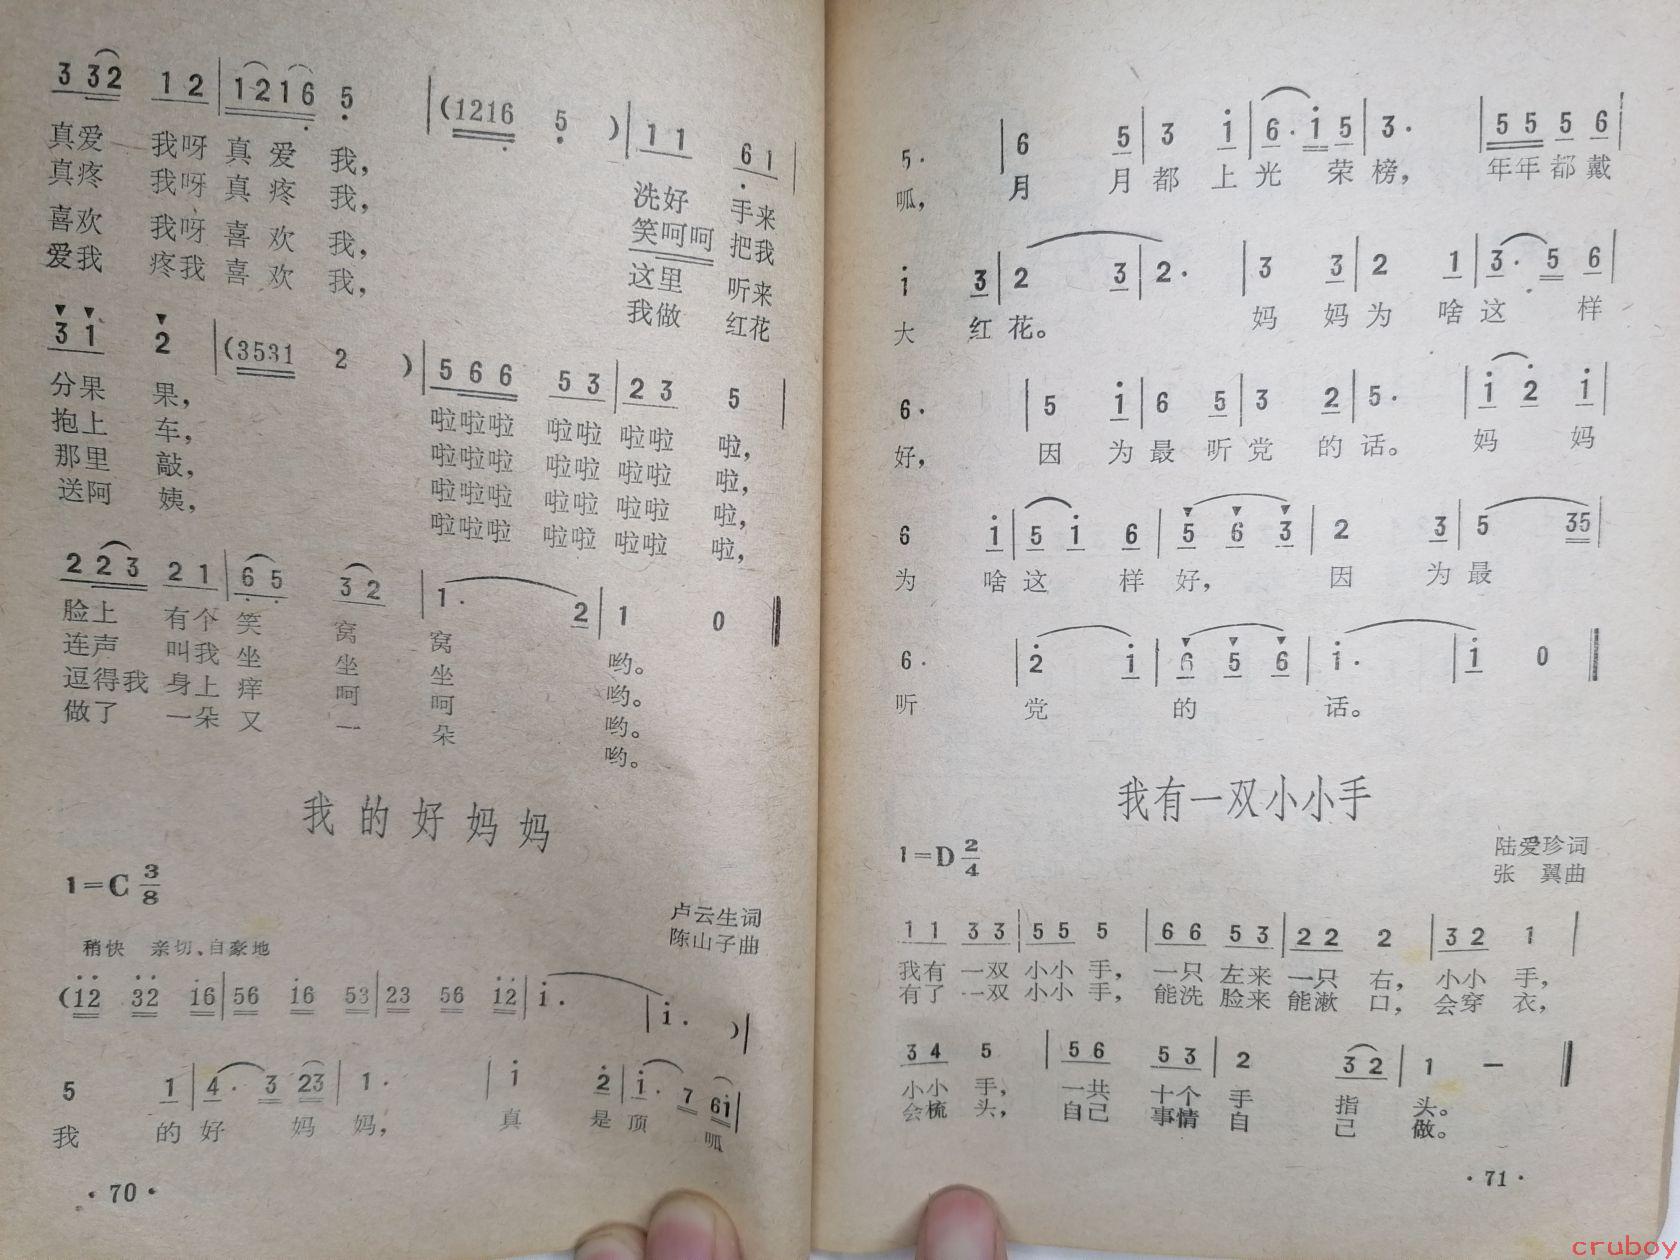 3 32 1 2 | 1 2 1 6 5 | (1216 5 ) | 1 1 6 1 |
真爱 我呀 真 爱 我， 洗好 手来
真疼 我呀 真 疼 我， 笑呵呵 把我
喜欢 我呀 喜 欢 我， 这里 听来
爱我 疼我 喜 欢 我， 我做 红花
3 1 2 | (3531 2 ) | 5 6 6 5 3 | 2 3 5 |
分果 果， 啦啦啦 啦啦 啦啦 啦，
抱上 车， 啦啦啦 啦啦 啦啦 啦，
那里 敲， 啦啦啦 啦啦 啦啦 啦，
送阿 姨， 啦啦啦 啦啦 啦啦 啦，
2 2 3 2 1 | 6 5 3 2 | 1 · 2 | 1 0
脸上 有个 笑 窝 窝 哟。
连声 叫我 坐 坐 坐 哟。
逗得我 身上 痒 呵 呵 哟。
做了 一朵 又 一 朵 哟。
我的好妈妈
1=C 3/8
卢云生词
稍快 亲切、自豪地 陈山子曲
(12 32 16 | 56 16 53 | 23 56 12 | 1 · | 1 · ) |
5 1 | 4 · 3 23 | 1 · | 1 2 | 1 · 7 61 |
我 的 好 妈 妈， 真 是 顶 呱
· 70 ·
5 · | 6 5 | 3 1 | 6 · 1 5 | 3 · | 5 5 5 6 |
呱， 月 月 都 上 光 荣 榜， 年年 都 戴
1 3 | 2 3 | 2 · | 3 3 | 2 1 | 3 · 5 6 |
大 红 花。 妈 妈 为 啥 这 样
6 · | 5 1 | 6 5 | 3 2 | 5 · | 1 2 1 |
好， 因 为 最 听 党 的 话。 妈 妈
6 1 | 5 1 6 | 5 6 3 | 2 3 | 5 35 |
为 啥 这 样 好， 因 为 最
6 · | 2 1 | 6 5 6 | 1 · | 1 0
听 党 的 话。
我有一双小小手
1=D 2/4
陆爱珍词
张 翼曲
1 1 3 3 | 5 5 5 | 6 6 5 3 | 2 2 2 | 3 2 1 |
我有 一双 小小 手， 一只 左来 一只 右， 小小 手，
有了 一双 小小 手， 能洗 脸来 能漱 口， 会穿 衣，
3 4 5 | 5 6 5 3 | 2 3 2 | 1 —
小小 手， 一共 十个 手 指 头。
会梳 头， 自己 事情 自 己 做。
· 71 ·
cruboy